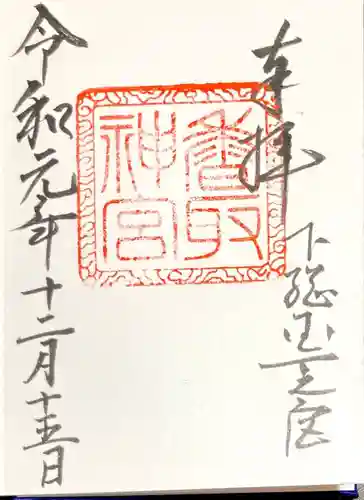 奉拝
下総国一之宮
香取
神宮
令和元年十二月十五日